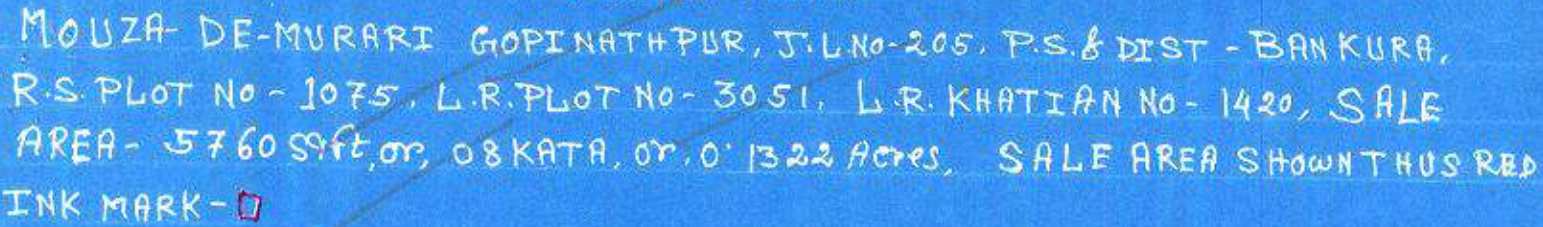 MOUZA- DE-MURARI GOPINATHPUR, J.L NO-205, P.S. & DIST - BANKURA,
R.S. PLOT NO - 1075, L.R. PLOT NO - 3051, L.R. KHATIAN NO - 1420, SALE
AREA - 5760 Sqft, or, 08 KATA, or, 0.1322 Acres, SALE AREA SHOWN THUS RED
INK MARK -